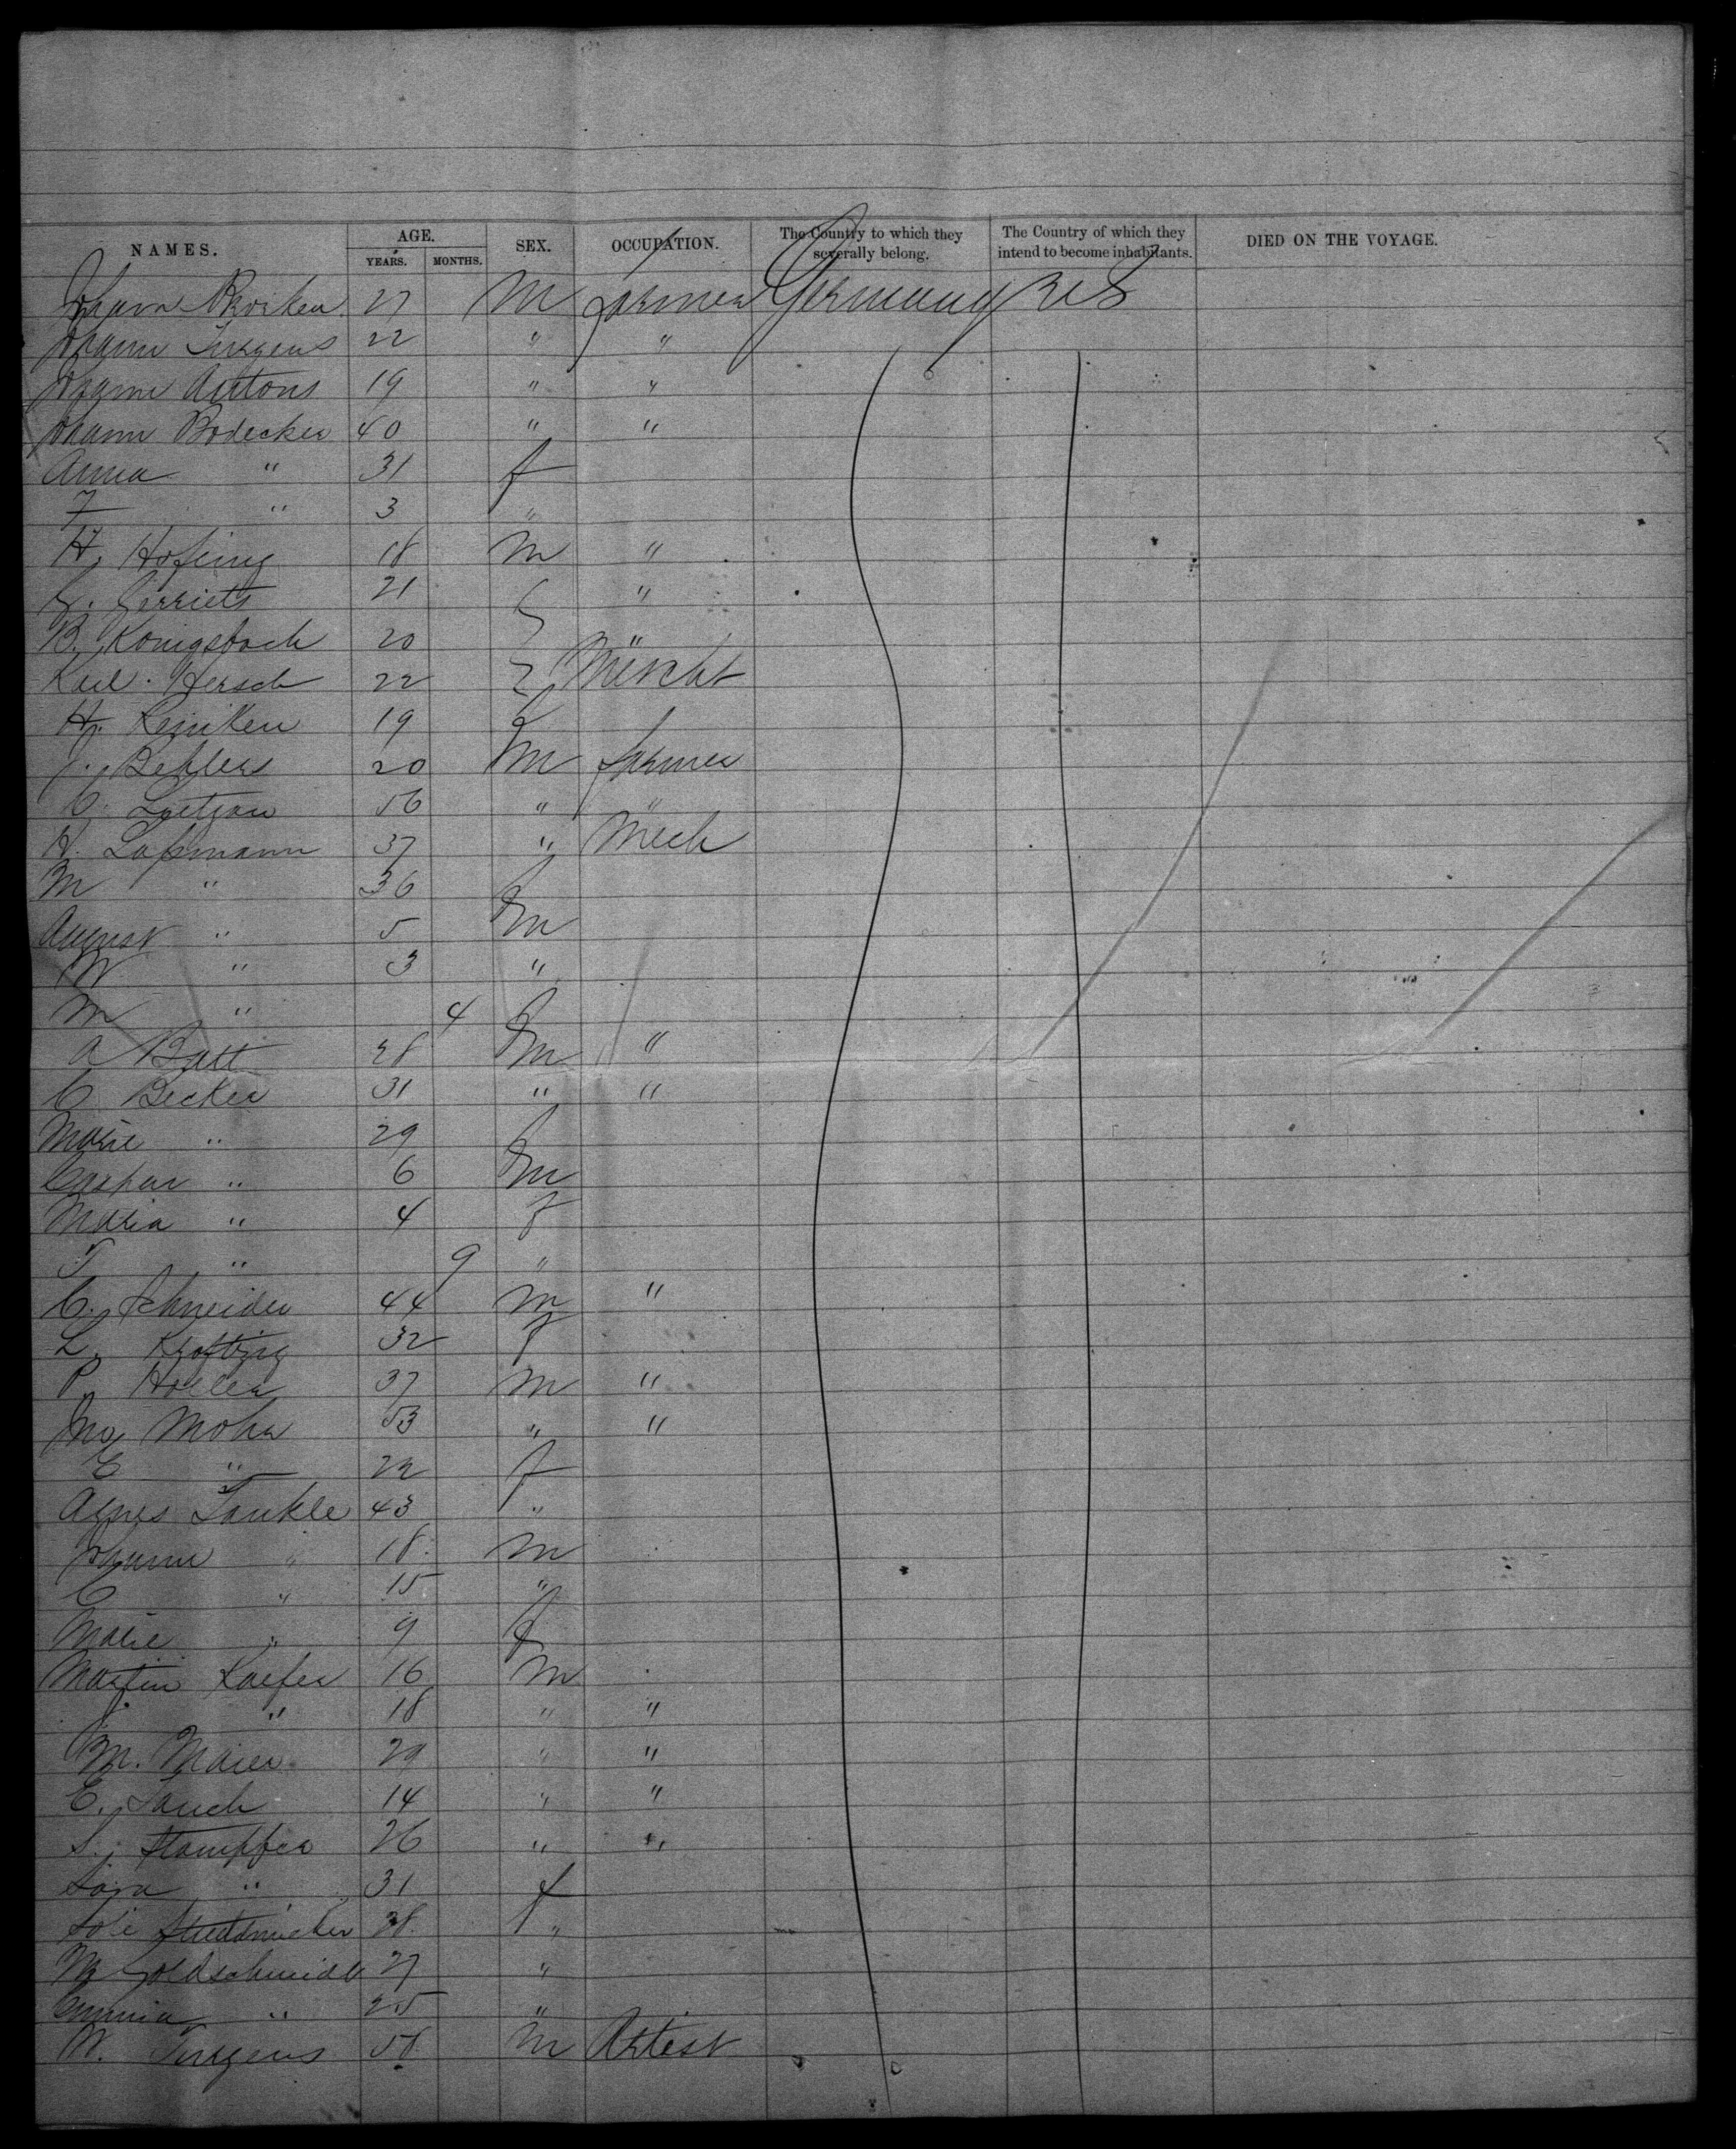 NAMES. AGE. YEARS. MONTHS. SEX. OCCUPATION. The Country to which they severally belong. The Country of which they intend to become inhabitants. DIED ON THE VOYAGE.
Johann 27 M Farmer Germany U S
Johann Jurgens 22 " "
Johann Antons 19 " "
Johann Bodecker 40 " "
Anna " 31 f
F " 3 "
H. Hofing 18 M "
G. Gerriets 21 "
B. Konigsbach 20 "
Karl Hersch 22 Mercht
H. Reiniken 19 f
J. Behlers 20 M Farmer
C. 56 " "
H. Laßmann 37 " Mech
M " 36 f
August " 5 m
W " 3 "
M " 4 f
A Batt 28 m "
C Becker 31 " "
Marie " 29 f
Caspar " 6 m
Maria " 4 f
T " 9 "
C. Schneider 44 m "
L. 32 f
P. Holler 37 m "
Jno Mohr 53 " "
E " 22 f
Agnes Tankle 43 "
Johann " 18 m
C " 15 "
Marie " 9 f
Martin Kaefer 16 m
J. " 18 " "
M. Maier 29 " "
E. Lauch 14 " "
S. Stampfer 26 " "
Sara " 31 f
38 "
M Goldschmidt 27 "
Emma " 25 "
W. Jurgens 58 M Artist